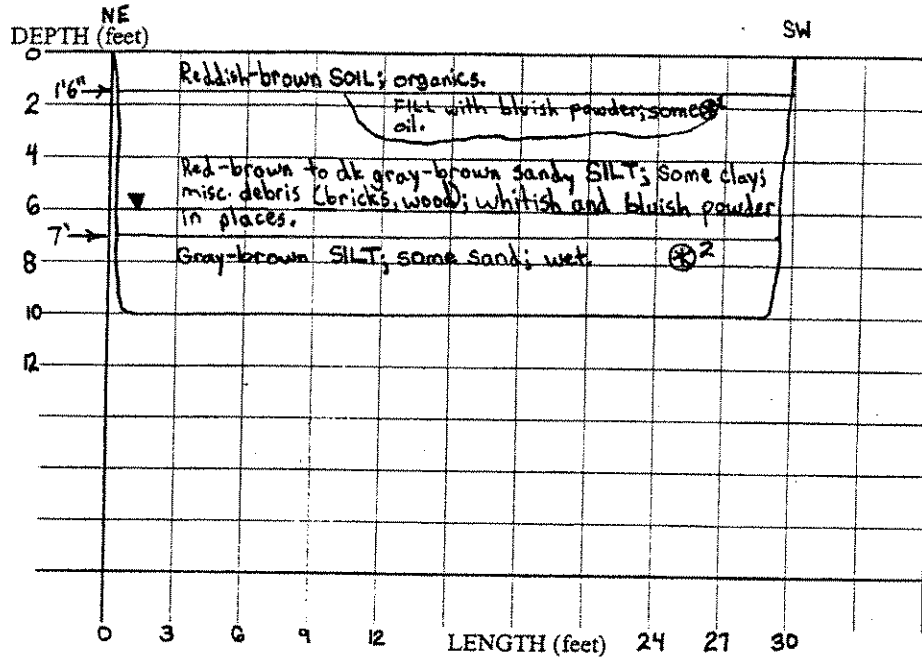 NE
DEPTH (feet)
SW
0
Reddish-brown SOIL; organics.
1'6"
2
FILL with bluish powder; some 1
oil.
4
Red-brown to dk gray-brown sandy SILT; Some clay;
misc. debris (bricks, wood); whitish and bluish powder
6
in places.
7'
8
Gray-brown SILT; some sand; wet. 2
10
12
0 3 6 9 12 LENGTH (feet) 24 27 30